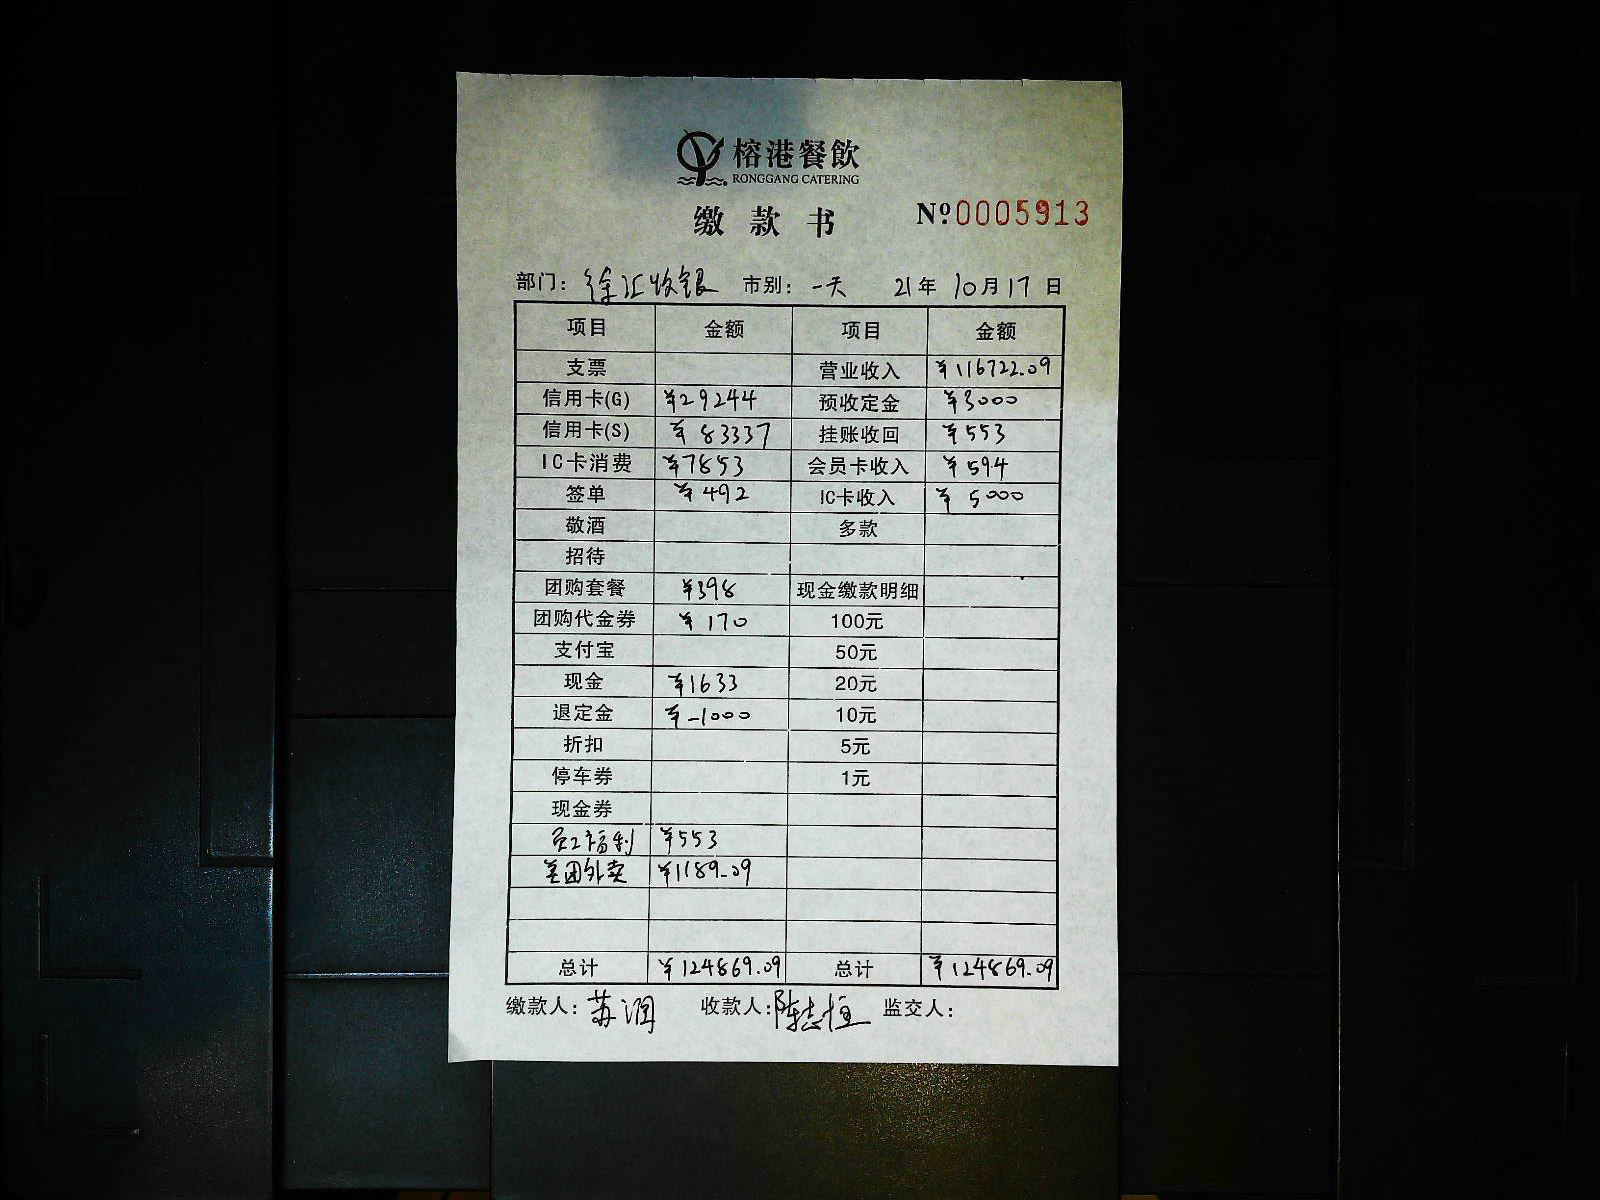 榕港餐飲
RONGGANG CATERING
缴款书 Nº0005913
部门：徐汇收银 市别：一天 21年10月17日
项目 金额 项目 金额
支票 营业收入 ¥116722.09
信用卡(G) ¥29244 预收定金 ¥3000
信用卡(S) ¥83337 挂账收回 ¥553
IC卡消费 ¥7853 会员卡收入 ¥594
签单 ¥492 IC卡收入 ¥5000
敬酒 多款
招待
团购套餐 ¥398 现金缴款明细
团购代金券 ¥170 100元
支付宝 50元
现金 ¥1633 20元
退定金 ¥-1000 10元
折扣 5元
停车券 1元
现金券
员工福利 ¥553
美团外卖 ¥1189.09
总计 ¥124869.09 总计 ¥124869.09
缴款人：苏润 收款人：陈志恒 监交人：